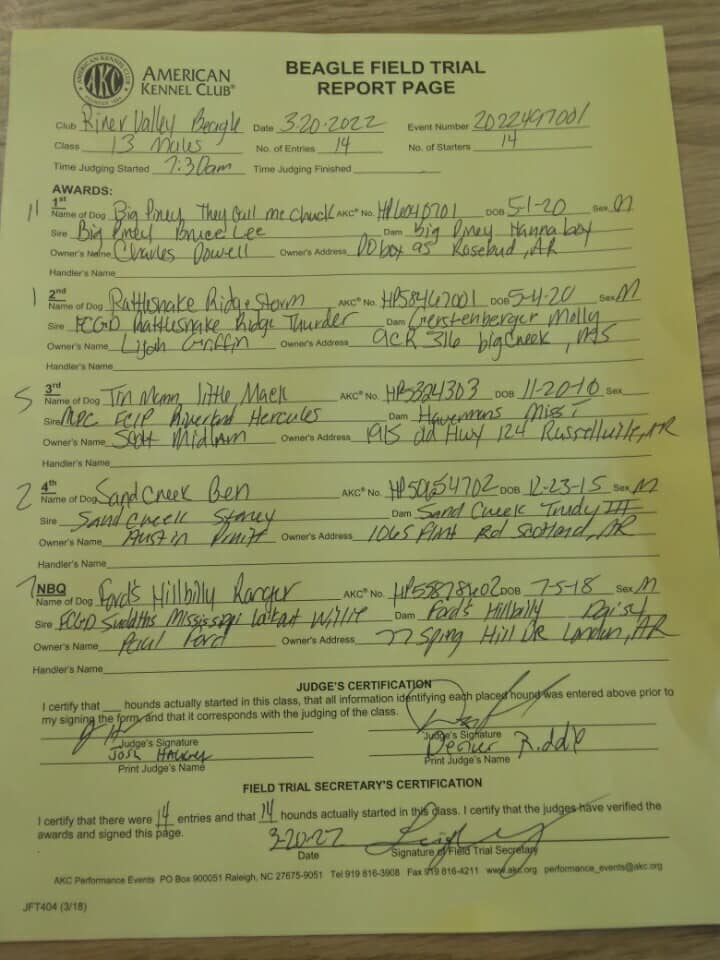 AMERICAN KENNEL CLUB®
BEAGLE FIELD TRIAL
REPORT PAGE
Club River Valley Beagle Date 3-20-2022 Event Number 2022497001
Class 13 Males No. of Entries 14 No. of Starters 14
Time Judging Started 7:30am Time Judging Finished
AWARDS:
11 1st
Name of Dog Big Piney They Call me Chuck AKC® No. DOB 5-1-20 Sex M
Sire Big Piney Bruce Lee Dam Big Piney Hanna
Owner's Name Charles Powell Owner's Address PO box 95 Rosebud, AR
Handler's Name
1 2nd
Name of Dog Rattlesnake Ridge Storm AKC® No. HP58467001 DOB 5-4-20 Sex M
Sire FCGD Rattlesnake Ridge Thunder Dam Gerstenberger Molly
Owner's Name Griffin Owner's Address 9 CR 316 big Creek, MS
Handler's Name
5 3rd
Name of Dog Tin Mann little Mack AKC® No. HP5324303 DOB 11-20-16 Sex
Sire Hercules Dam Havermans Missi
Owner's Name Scott Owner's Address 1915 old Hwy 124 Russellville, AR
Handler's Name
2 4th
Name of Dog Sand Creek Ben AKC® No. HP50654702 DOB 12-23-15 Sex M
Sire Sand Creek Stoney Dam Sand Creek Trudy III
Owner's Name Austin Pruitt Owner's Address 1065 Flint Rd Scotland, AR
Handler's Name
7 NBQ
Name of Dog Ford's Hillbilly Ranger AKC® No. HP55878402 DOB 7-5-18 Sex M
Sire FCGD Mississippi Willie Dam Ford's Hillbilly Daisy
Owner's Name Paul Ford Owner's Address 77 Sping Hill DR London, AR
Handler's Name
JUDGE'S CERTIFICATION
I certify that ___ hounds actually started in this class, that all information identifying each placed hound was entered above prior to
my signing the form, and that it corresponds with the judging of the class.
Judge's Signature Judge's Signature
Josh Hackney Denver Riddle
Print Judge's Name Print Judge's Name
FIELD TRIAL SECRETARY'S CERTIFICATION
I certify that there were 14 entries and that 14 hounds actually started in this class. I certify that the judges have verified the
awards and signed this page.
3-20-22
Date Signature of Field Trial Secretary
AKC Performance Events PO Box 900051 Raleigh, NC 27675-9051 Tel 919 816-3908 Fax 919 816-4211 www.akc.org performance_events@akc.org
JFT404 (3/18)